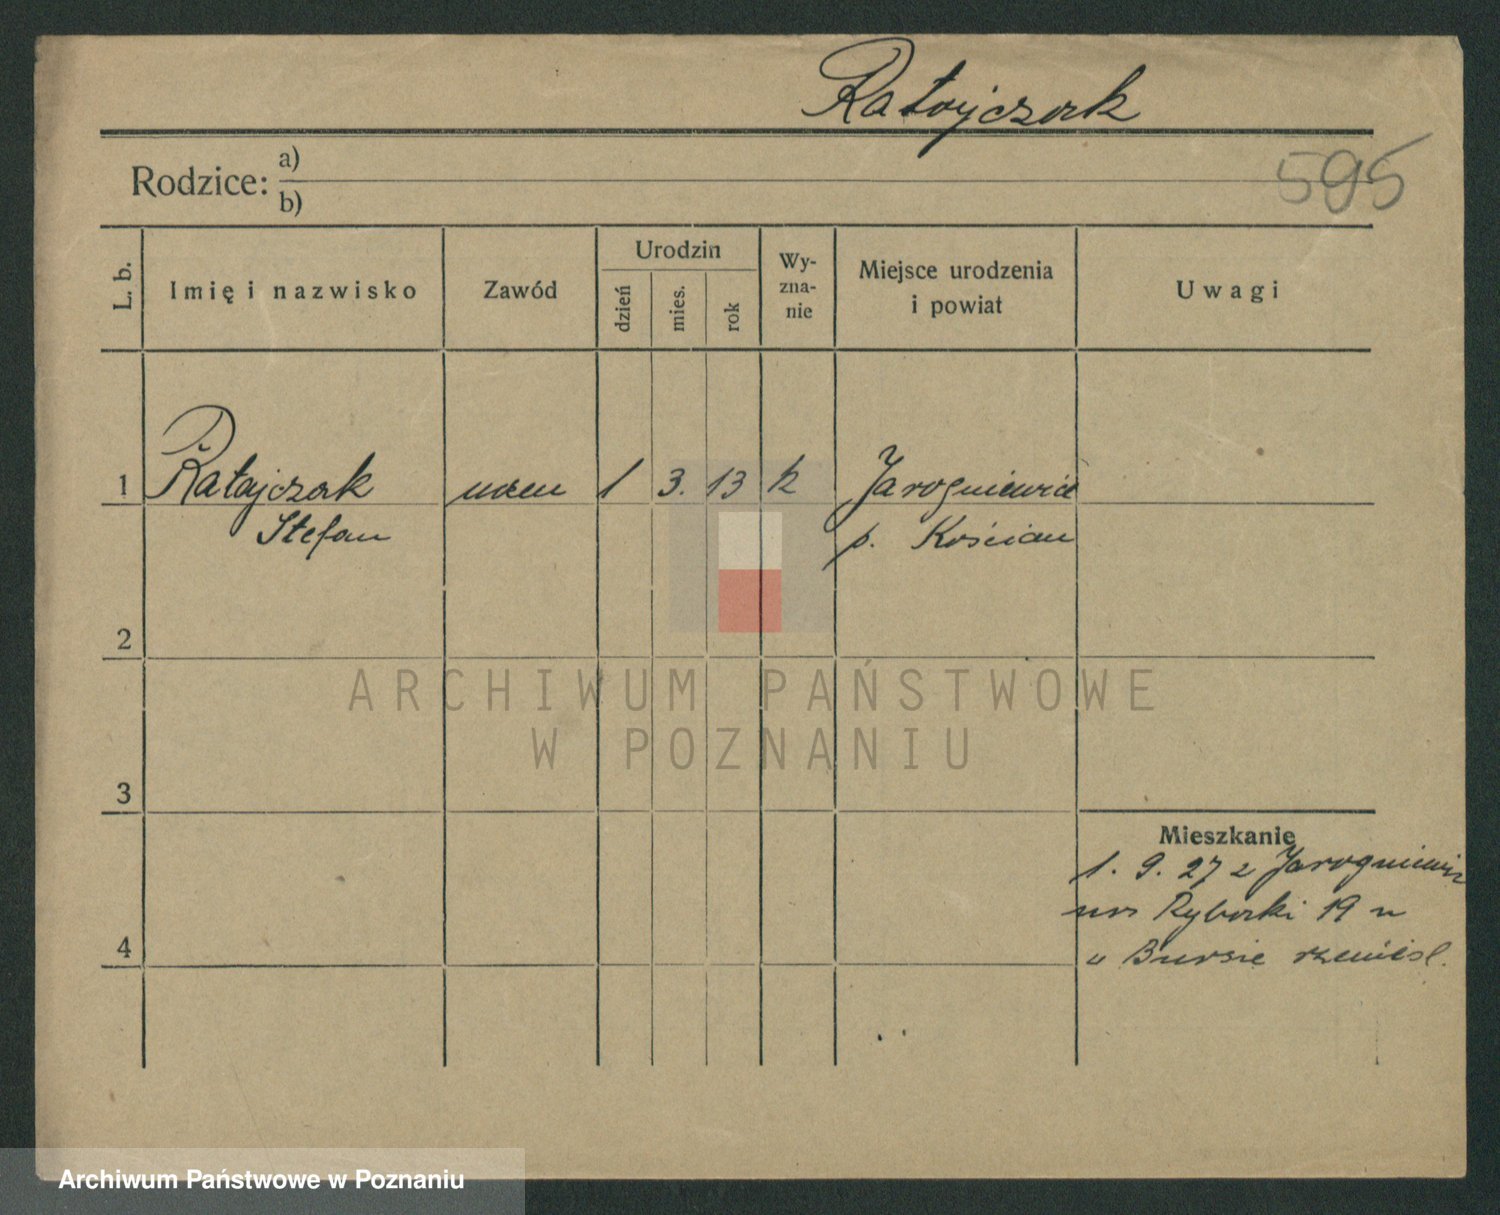 Ratajczak
595
Rodzice: a)
b)
L. b.
Imię i nazwisko
Zawód
Urodzin
dzień
mies.
rok
Wy-
zna-
nie
Miejsce urodzenia
i powiat
Uwagi
1 Ratajczak uczeń 1 3. 13 k Jarogniewice
Stefan p. Kościan
2
ARCHIWUM PAŃSTWOWE
W POZNANIU
3
Mieszkanie
1. 9. 27 z Jarogniewic
Rybaki 19
Bursie rzemieśl.
4
Archiwum Państwowe w Poznaniu